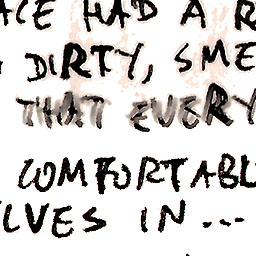 ACE HAD A R
DIRTY, SME
THAT EVERY
COMFORTABL
ELVES IN...